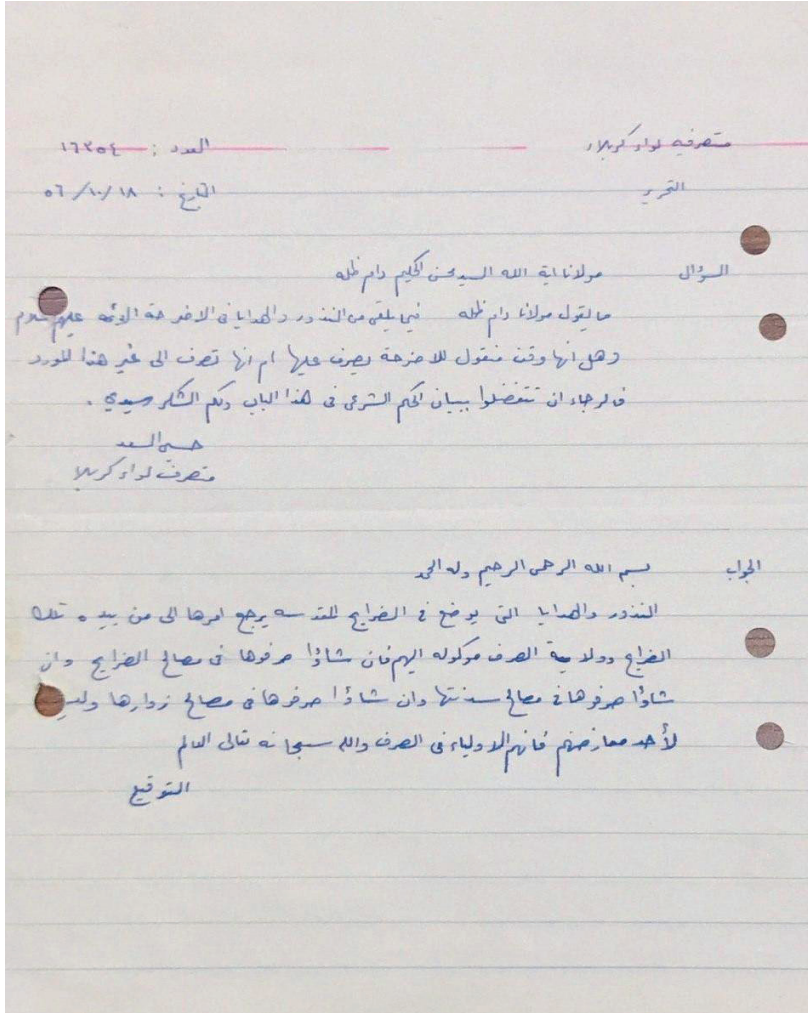 متصرفيه لواء كربلاء العدد : ١٦٣٥٤
التحرير التاريخ : ١٨/١٠/٥٦
السؤال مولانا اية الله السيد محسن الحكيم دام ظله
ما يقول مولانا دام ظله فيما يلقى من النذور والهدايا في الاضرحة الائمه عليهم سلام
وهل انها وقف منقول للاضرحة يصرف عليها ام انها تصرف الى غير هذا المورد
فالرجاء ان تتفضلوا ببيان الحكم الشرعي في هذا الباب ولكم الشكر سيدي .
حسين السعد
متصرف لواء كربلا
الجواب بسم الله الرحمن الرحيم وله الحمد
النذور والهدايا التي توضع في الضرايح المقدسه يرجع امرها الى من بيده تلك
الضرايح وولاية الصرف موكوله اليهم فان شاؤا صرفوها في مصالح الضرايح وان
شاؤا صرفوها في مصالح سدنتها وان شاؤا صرفوها في مصالح زوارها وليس
لأحد معارضتهم فانهم الاولياء في الصرف والله سبحانه تعالى العالم
التوقيع